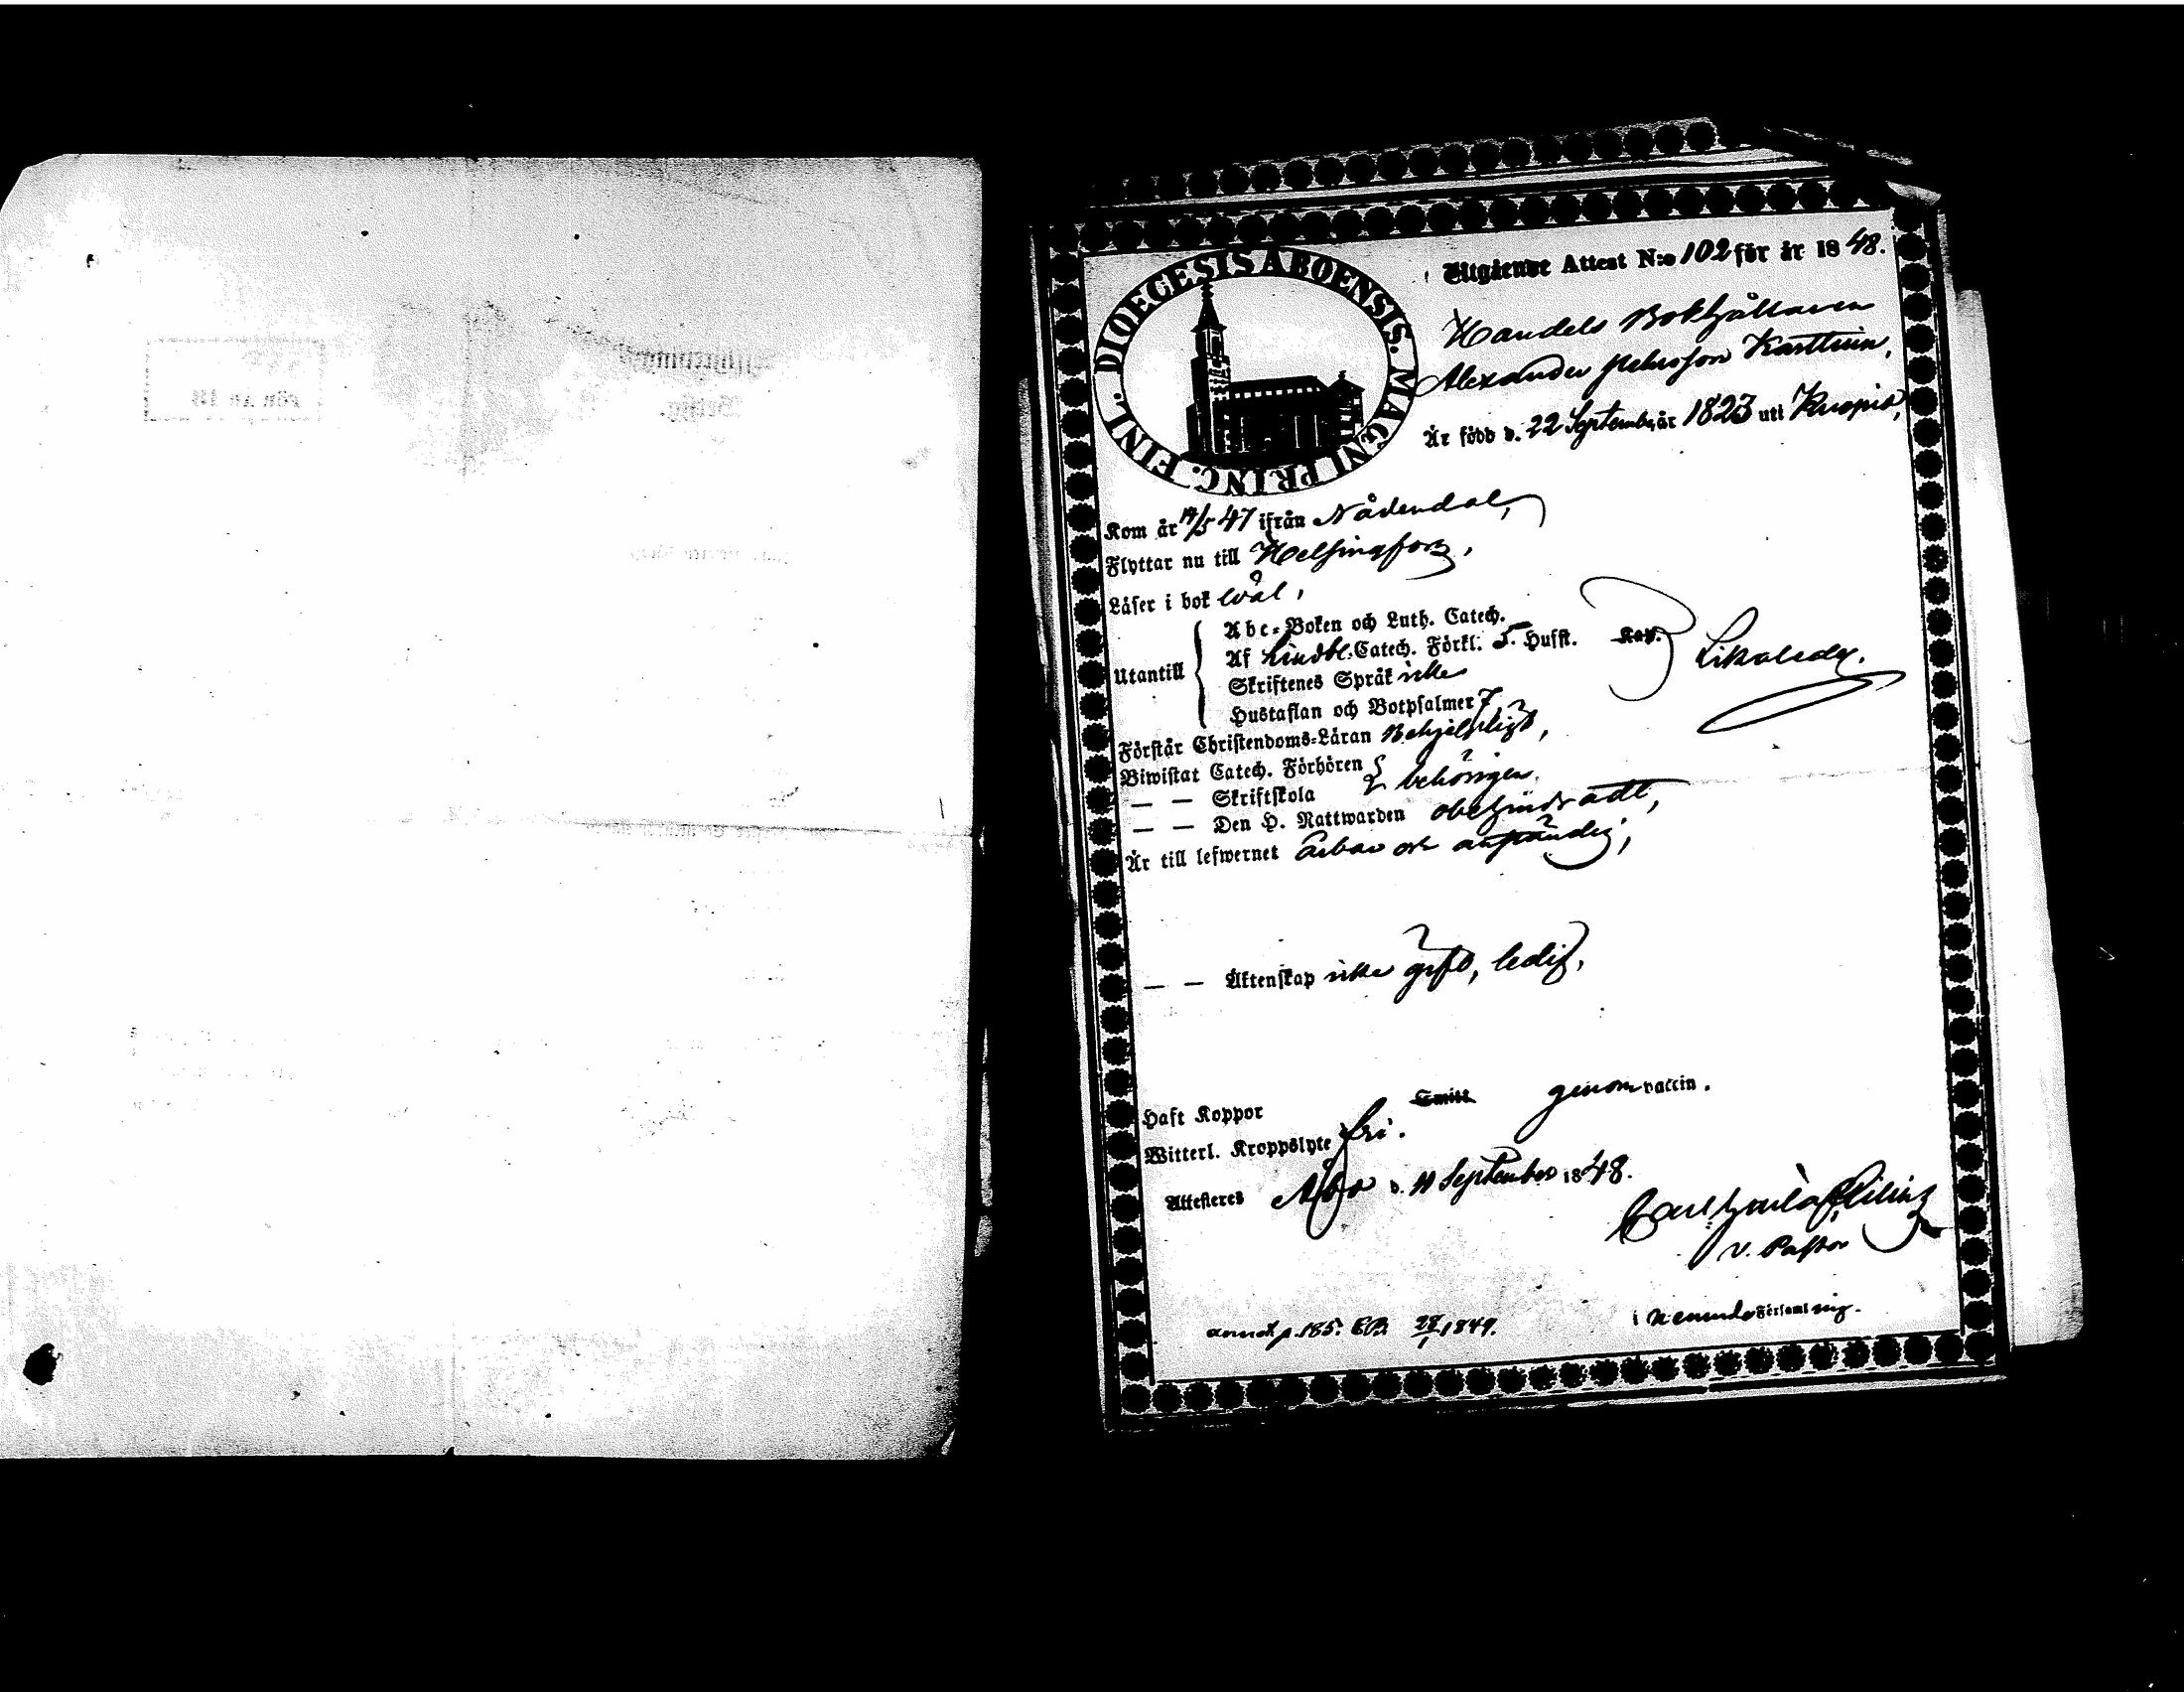 DIOECESIS ABOENSIS. MAGNI PRINC. FINL.
Utgående Attest N:o 102 för år 1848.
Handels Bokhållaren
Alexander Petersson Karttuin,
Är född d. 22 September år 1823 uti Kuopio,
Kom år 14/5 47 ifrån Nådendal,
Flyttar nu till Helsingfors,
Läser i bok wäl,
Utantill
Abc-Boken och Luth. Catech.
Af Lindbl. Catech. Förkl. 5. Hufst. Kap.
Likaledes.
Skriftenes Språk icke
Hustaflan och Botpsalmer 7,
Förstår Christendoms-Läran Behjelpligt,
Biwistat Catech. Förhören
— — Skriftskola behörigen.
— — Den H. Nattwarden obehindradt,
Är till lefwernet ärbar och anständig,
— — Äktenskap icke gift, ledig,
Haft Koppor Smitt genom vaccin.
Witterl. Kroppslyte fri.
Attesteres Åbo d. 11 September 1848.
Carl Gustaf
v. Pastor
i Nummis Församling.
annot p. 185. CB. 28/1 1849.